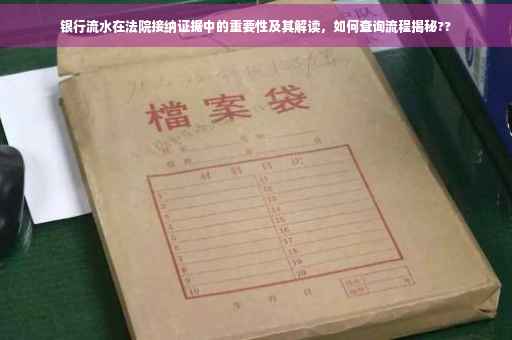 银行流水在法院接纳证据中的重要性及其解读，如何查询流程揭秘??
檔案袋
材料目次
1 11
2 12
3 13
4 14
5 15
6 16
7 17
8 18
9 19
10 20
年 月 日